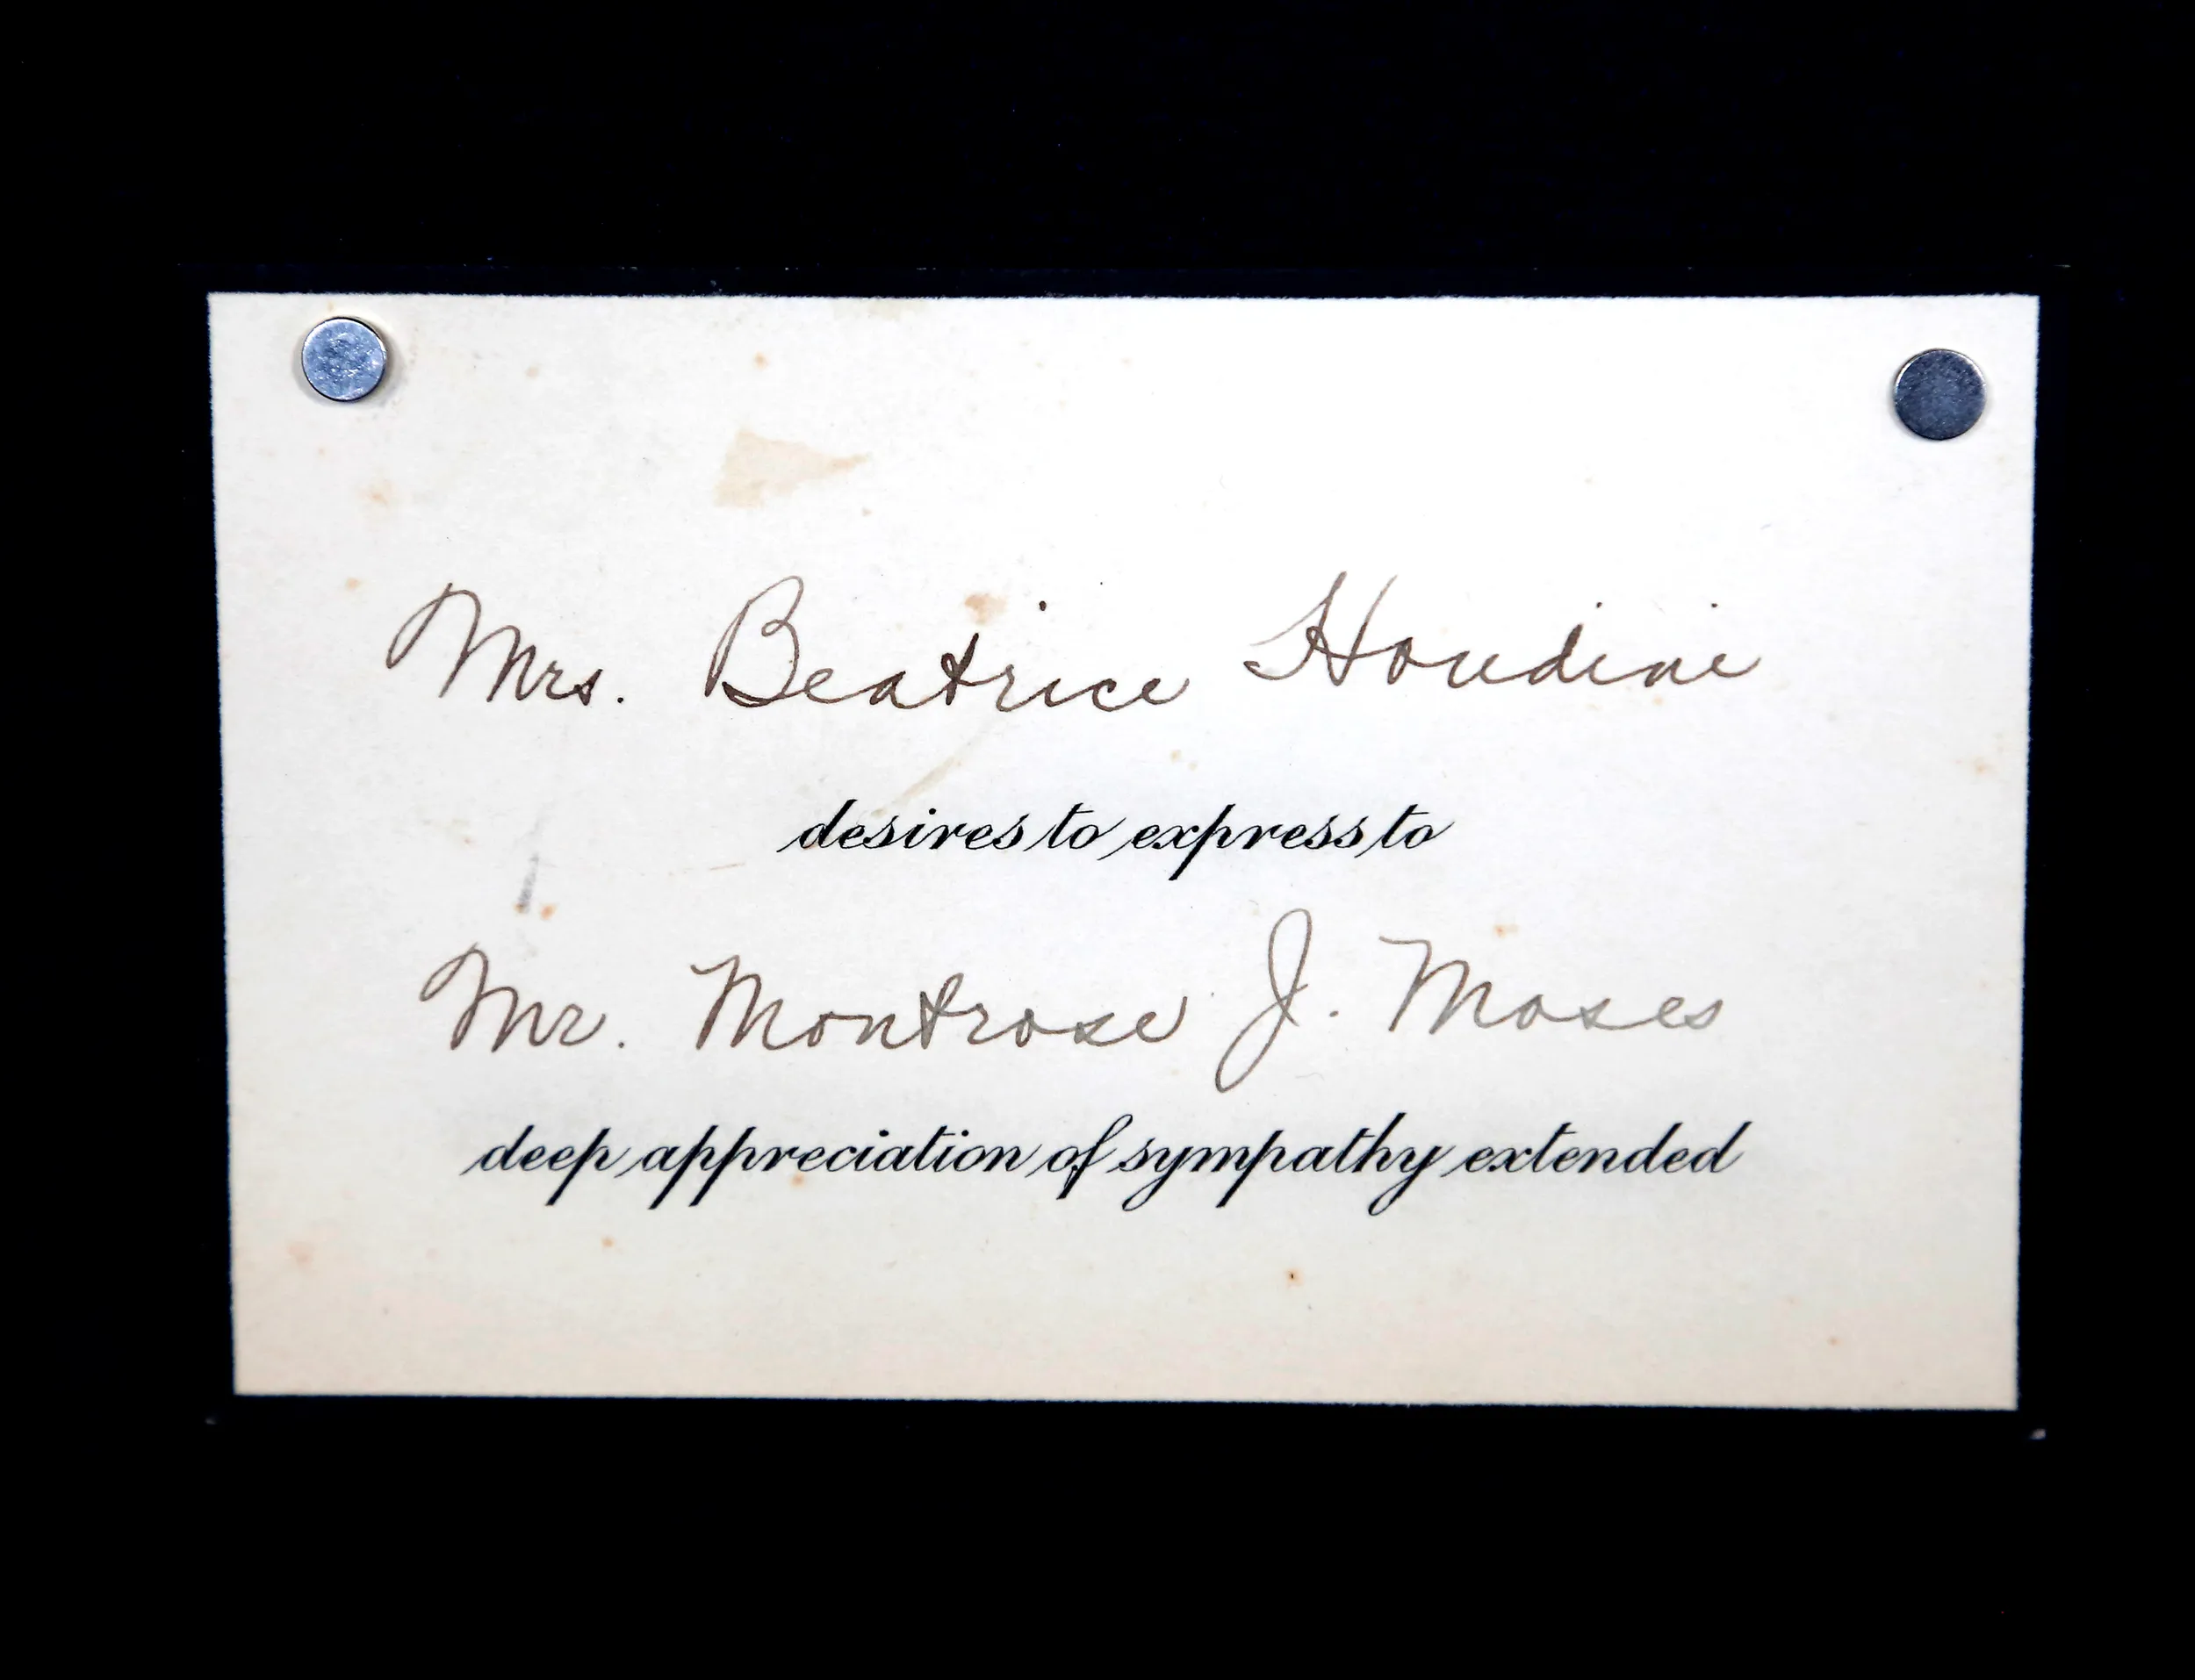 Mrs. Beatrice Houdini
desires to express to
Mr. Montrose J. Moses
deep appreciation of sympathy extended